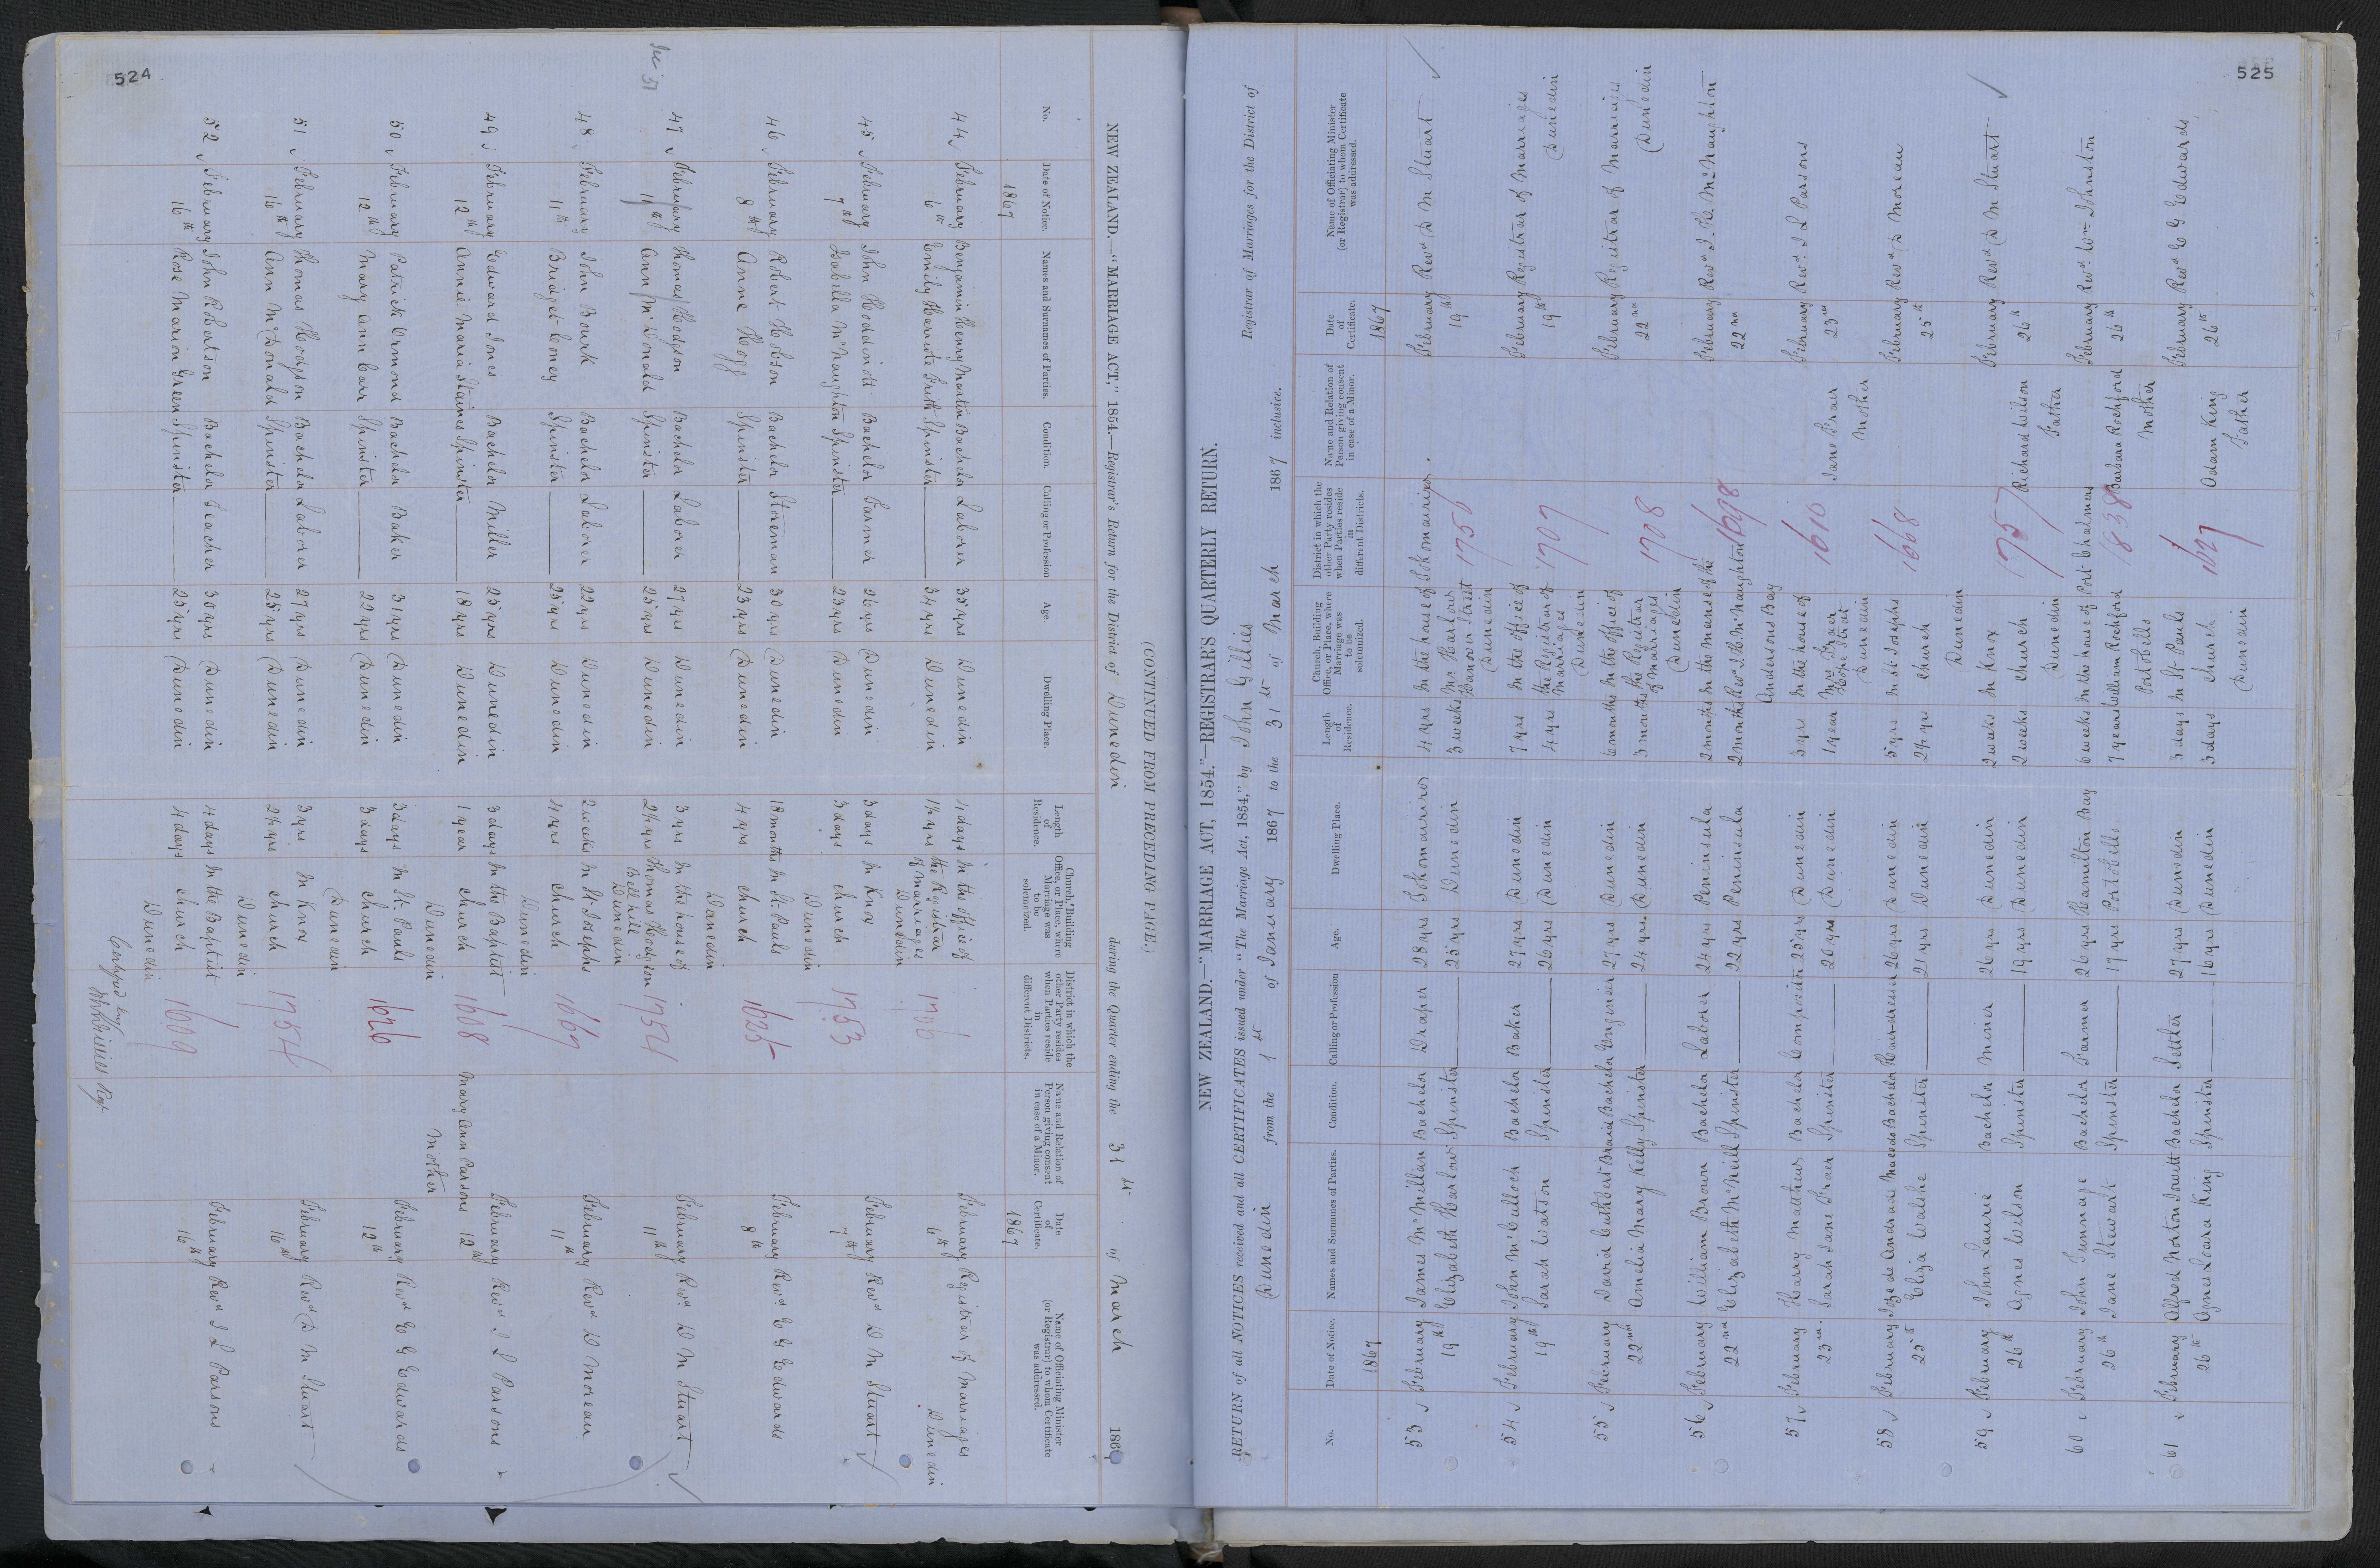 524
NEW ZEALAND.—"MARRIAGE ACT," 1854.—Registrar's Return for the District of Dunedin during the Quarter ending the 31st of March 1867
(CONTINUED FROM PRECEDING PAGE.)
No. Date of Notice. Names and Surnames of Parties. Condition. Calling or Profession Age. Dwelling Place. Length of Residence. Church, Building Office, or Place, where Marriage was to be solemnized. District in which the other Party resides when Parties reside in different Districts. Name and Relation of Person giving consent in case of a Minor. Date of Certificate. Name of Officiating Minister (or Registrar) to whom Certificate was addressed.
1867 1867
44 February Benjamin Henry Martin Bachelor Laborer 35 yrs Dunedin 4 days In the office of February Registrar of Marriages
6th Emily Harriete Frith Spinster 34 yrs Dunedin 1½ yrs the Registrar 1706 6th Dunedin
of Marriages
Dunedin
45 February John Hoddinott Bachelor Farmer 26 yrs Dunedin 3 days In Knox February Revd D M Stuart
7th Isabella McNaughton Spinster 23 yrs Dunedin 3 days Church 1753 7th
Dunedin
46 February Robert Hobson Bachelor Storeman 30 yrs Dunedin 18 months In St. Pauls February Revd E G Edwards
8th Anne Hoff Spinster 23 yrs Dunedin 4 yrs Church 1625 8th
Dunedin
47 February Thomas Hodgson Bachelor Laborer 27 yrs Dunedin 3 yrs In the house of February Revd D M Stuart
11th Ann McDonald Spinster 25 yrs Dunedin 2½ yrs Thomas Hodgson 11th
Bell hill
Dunedin
48 February John Bourk Bachelor Laborer 22 yrs Dunedin 2 weeks In St. Josephs February Revd D Moreau
11th Bridget Coney Spinster 25 yrs Dunedin 4 yrs Church 1667 11th
Dunedin
49 February Edward Jones Bachelor Miller 25 yrs Dunedin 3 days In the Baptist February Revd J L Parsons
12th Annie Maria Staines Spinster 18 yrs Dunedin 1 year Church 1608 Mary Ann Parsons 12th
Dunedin Mother
50 February Patrick Ormond Bachelor Baker 31 yrs Dunedin 3 days In St. Pauls February Revd E G Edwards
12th Mary Ann Carr Spinster 22 yrs Dunedin 3 days Church 1626 12th
Dunedin
51 February Thomas Hodgson Bachelor Laborer 27 yrs Dunedin 3 yrs In Knox February Revd D M Stuart
16th Ann McDonald Spinster 25 yrs Dunedin 2½ yrs Church 1754 16th
Dunedin
52 February John Robertson Bachelor Teacher 30 yrs Dunedin 4 days In the Baptist February Revd J L Parsons
16th Rose Marion Green Spinster 25 yrs Dunedin 4 days Church 1609 16th
Dunedin
John Gillies
525
NEW ZEALAND.—"MARRIAGE ACT, 1854."—REGISTRAR'S QUARTERLY RETURN.
RETURN of all NOTICES received and all CERTIFICATES issued under "The Marriage Act, 1854," by John Gillies Registrar of Marriages for the District of
Dunedin from the 1st of January 1867 to the 31st of March 1867 inclusive.
No. Date of Notice. Names and Surnames of Parties. Condition. Calling or Profession Age. Dwelling Place. Length of Residence. Church, Building Office, or Place, where Marriage was to be solemnized. District in which the other Party resides when Parties reside in different Districts. Name and Relation of Person giving consent in case of a Minor. Date of Certificate. Name of Officiating Minister (or Registrar) to whom Certificate was addressed.
1867 1867
53 February James McMillan Bachelor Draper 28 yrs Tokomairiro 4 yrs In the house of Tokomairiro February Revd D M Stuart
19th Elizabeth Harlow Spinster 25 yrs Dunedin 3 weeks Mr Harlows 19th
Hanover Street
Dunedin
54 February John McCulloch Bachelor Baker 27 yrs Dunedin 7 yrs In the office of February Registrar of Marriages
19th Sarah Watson Spinster 26 yrs Dunedin 4 yrs the Registrar of 1707 19th Dunedin
Marriages
Dunedin
55 February David Cuthbert Braid Bachelor Engineer 27 yrs Dunedin 6 months In the office of February Registrar of Marriages
22nd Amelia Mary Kelly Spinster 24 yrs. Dunedin 3 months the Registrar 1708 22nd Dunedin
of Marriages
Dunedin
56 February William Brown Bachelor Laborer 24 yrs Peninsula 2 months In the manse of the February Revd
22nd Elizabeth McNeill Spinster 22 yrs Peninsula 2 months 1698 22nd
Andersons Bay
57 February Harry Matthews Bachelor Compositor 25 yrs Dunedin 3 yrs In the house of February Revd. J L Parsons
23rd. Sarah Jane Fraer Spinster 20 yrs Dunedin 1 year Mrs Fraer 1610 Jane Fraer 23rd
Hope Street Mother
Dunedin
58 February Joze de Andrade Macedo Bachelor Hairdresser 26 yrs Dunedin 5 yrs In St. Josephs February Revd D Moreau
25th Eliza Walshe Spinster 21 yrs Dunedin 2½ yrs Church 1668 25th
Dunedin
59 February John Laurie Bachelor Miner 26 yrs Dunedin 2 weeks In Knox February Revd D M Stuart
26th Agnes Wilson Spinster 19 yrs Dunedin 2 weeks Church 1757 Richard Wilson 26th
Dunedin Father
60 February John Tunnage Bachelor Farmer 26 yrs Hamilton Bay 6 weeks In the house of Port Chalmers February Revd. Wm Johnston
26th Jane Stewart Spinster 17 yrs Portobello 7 years William Rochford 1838 Barbara Rochford 26th
Portobello Mother
61 February Alfred Norton Jowitt Bachelor Settler 27 yrs Dunedin 3 days In St. Pauls February Revd E G Edwards
26th Agnes Loara King Spinster 16 yrs Dunedin 3 days Church 1627 Adam King 26th
Dunedin Father